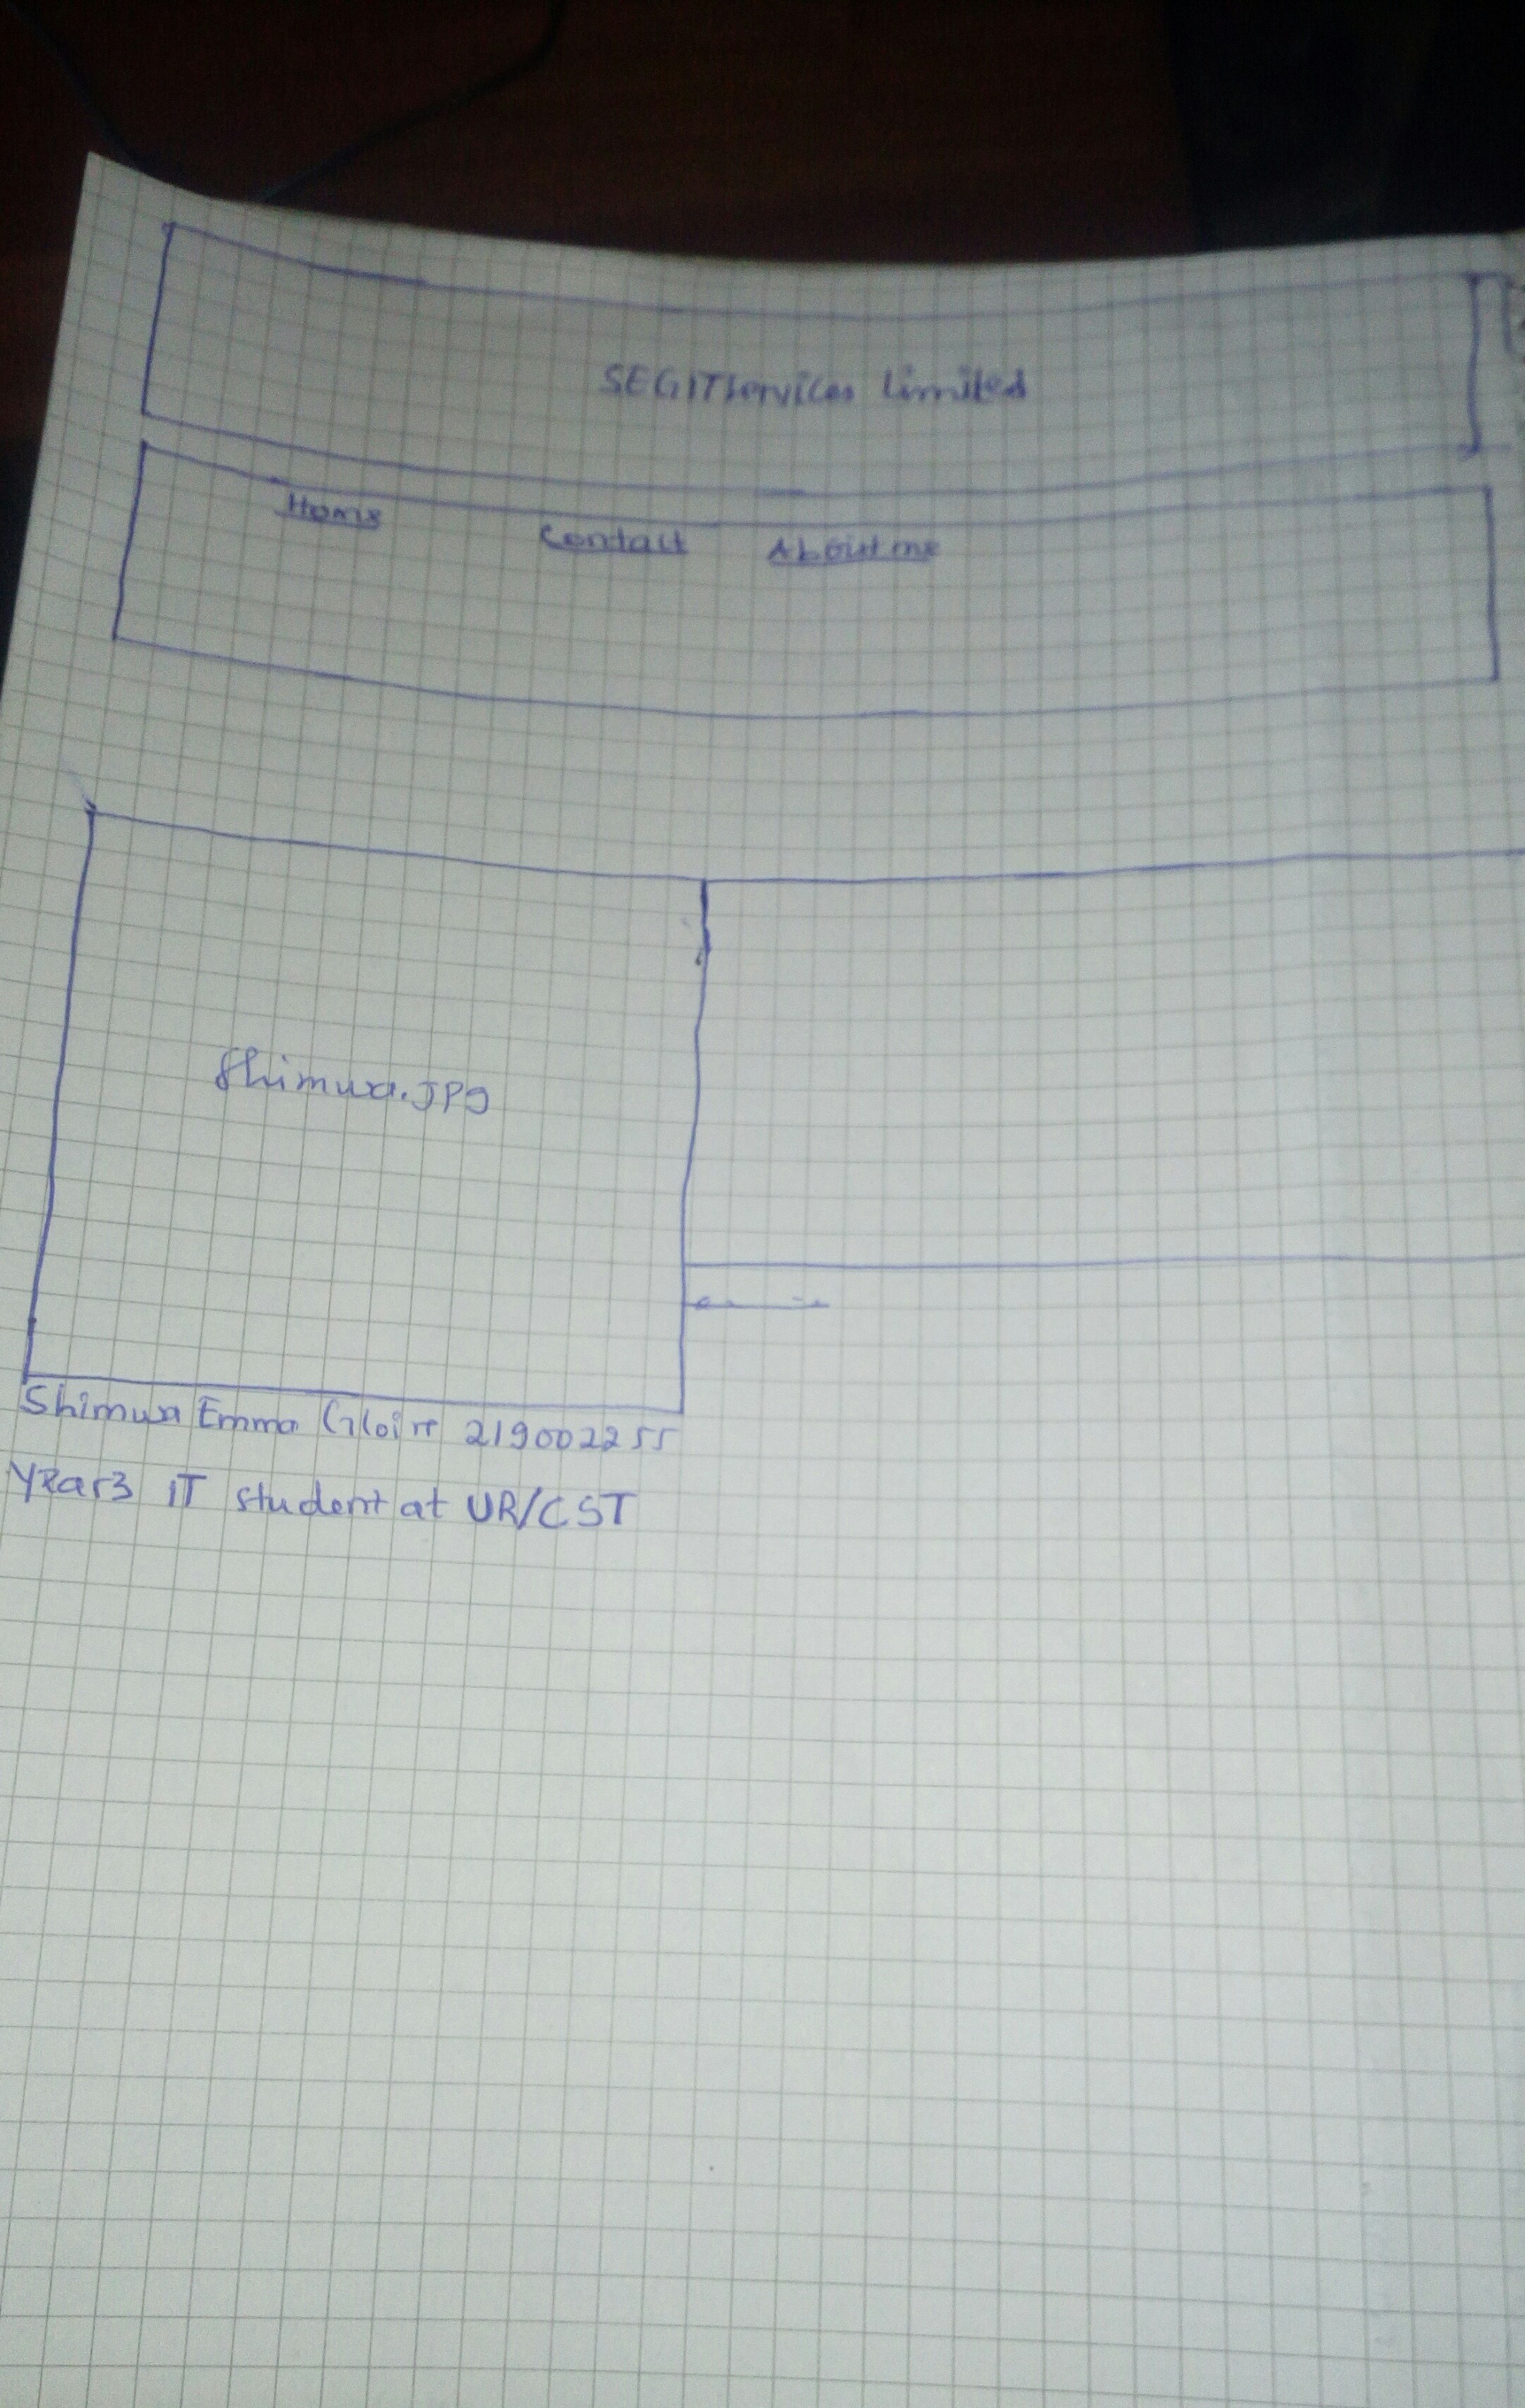 SEGITServices Limited
Home Contact About me
Shimwa.JPG
Shimwa Emma Gloire 219002255
Year3 IT student at UR/CST